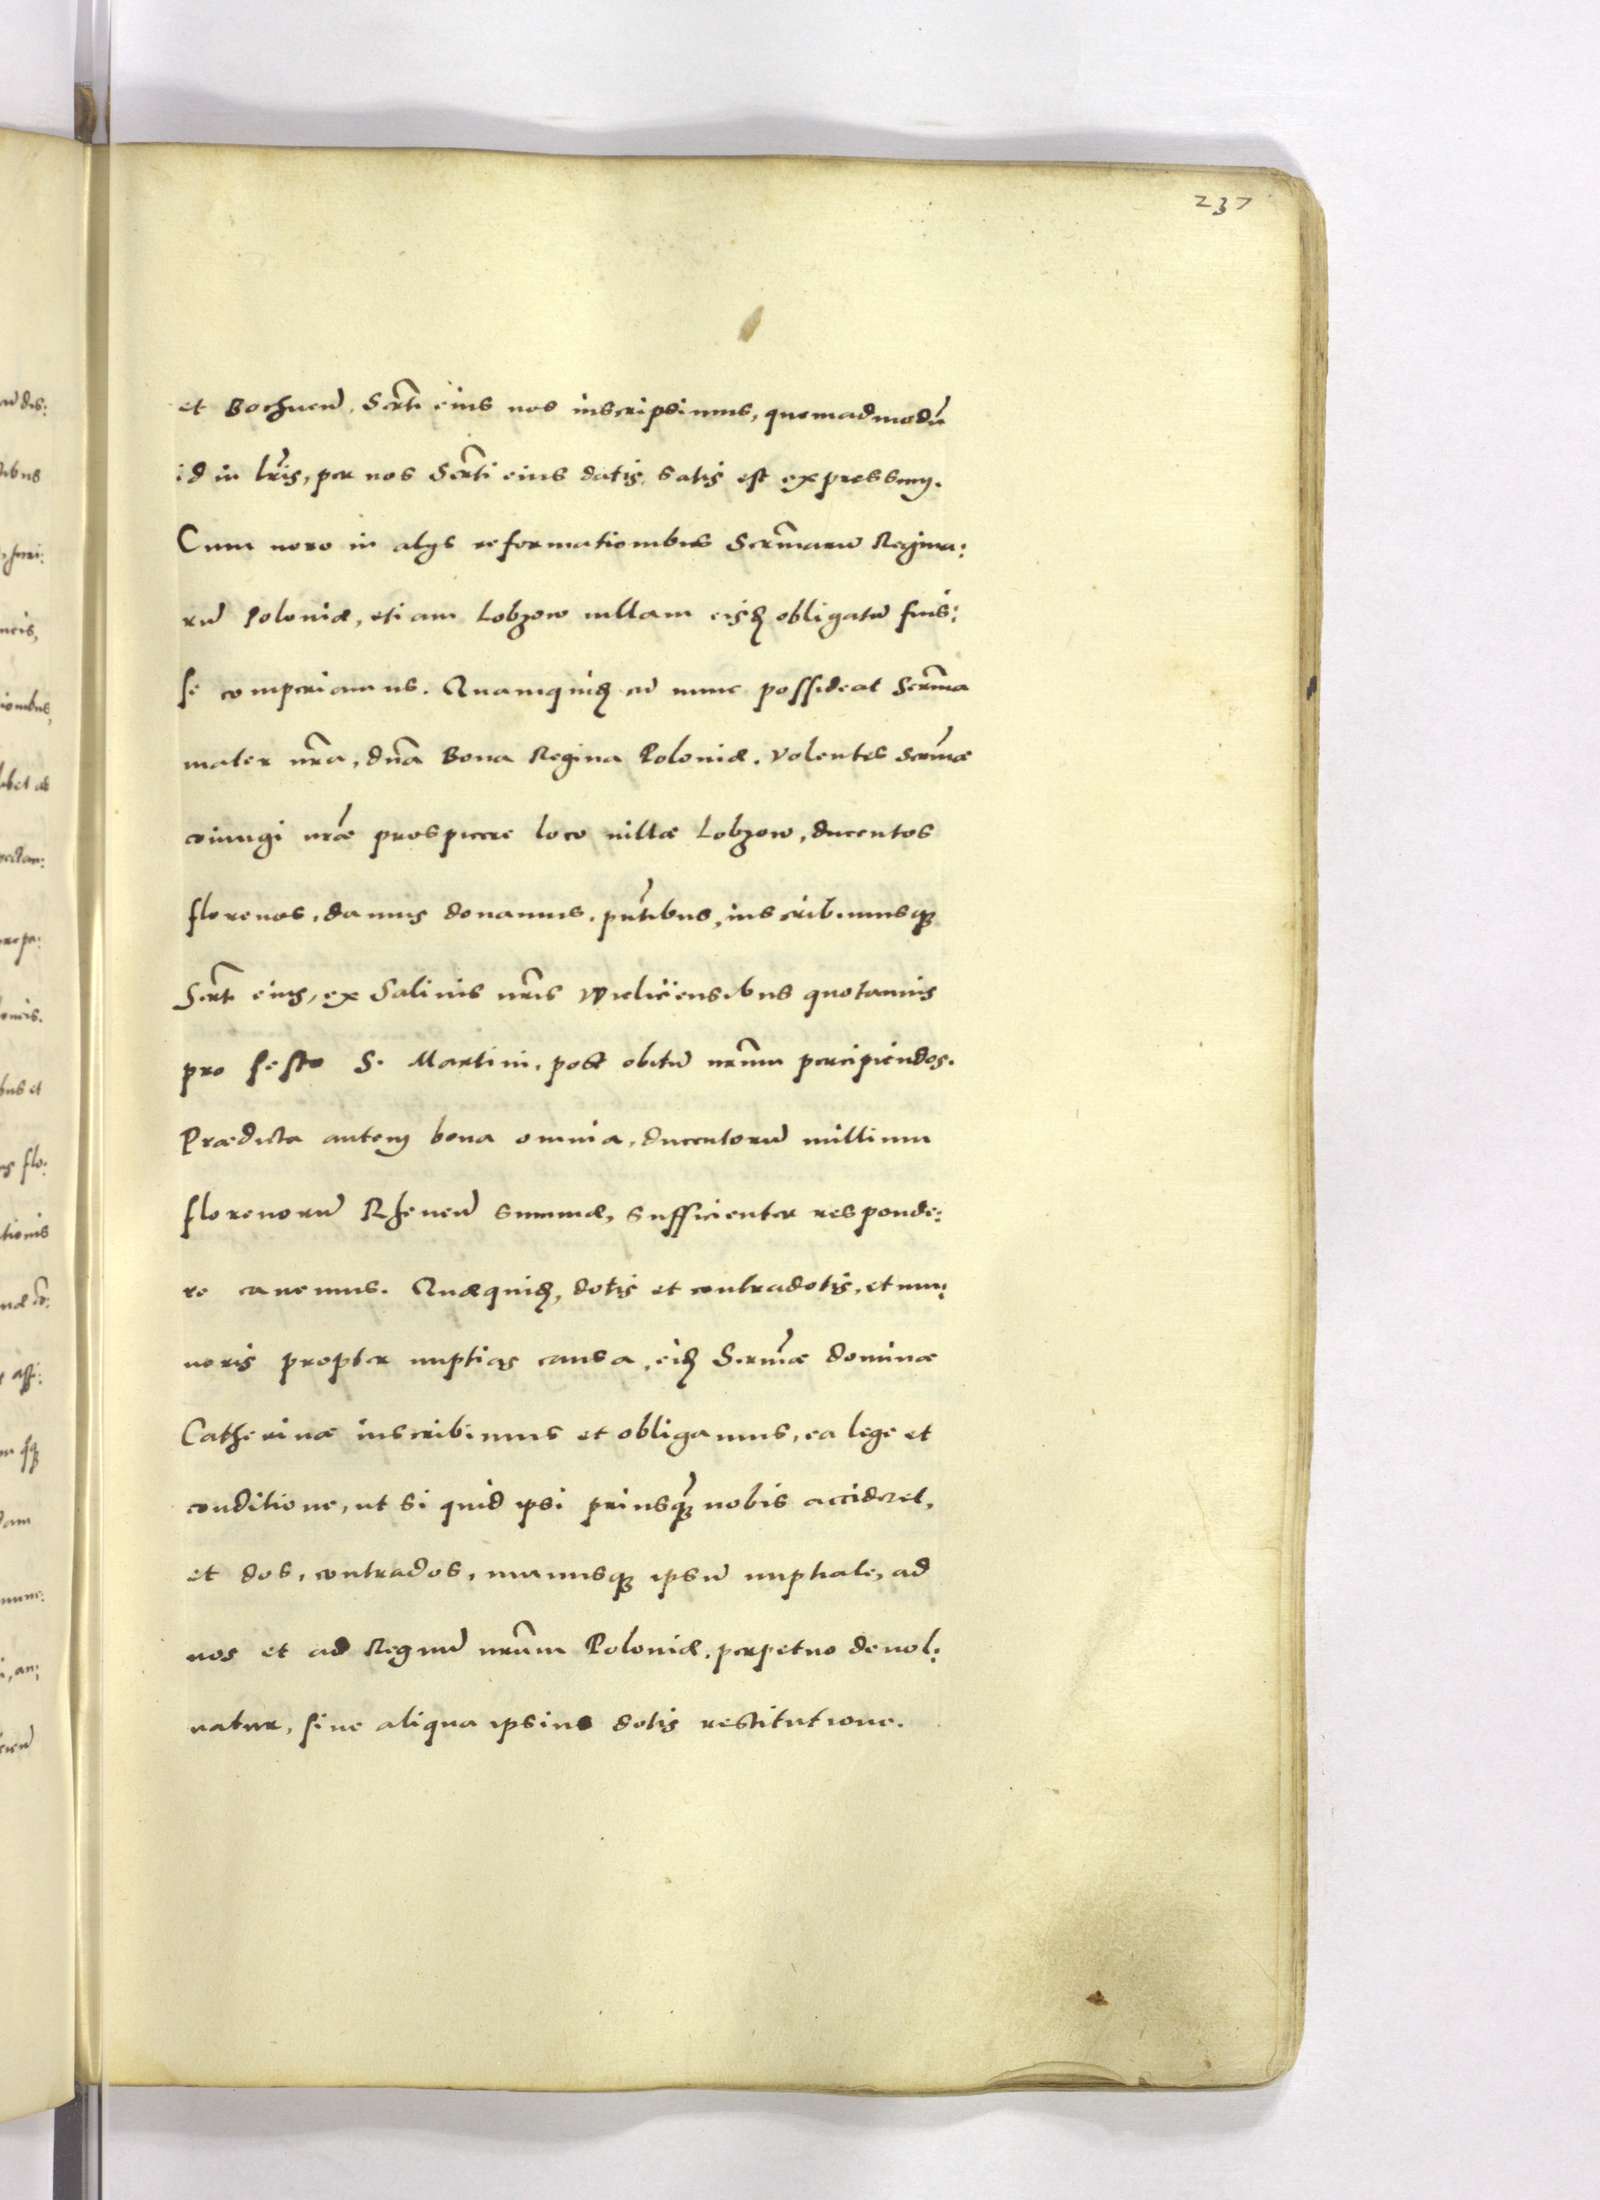 237
et Bochnen̄, Serti eius nos inscripsimus, quemadmodū
id in lris, per nos Serti eius datis, satis est expressum.
Cum vero in alijs reformationibus Serm̄arum Regina:
rū Poloniæ, etiam Lobzow villam eisd obligatū fuis:
se comperiamus. Quamquid cū nunc possideat Serm̄a
mater nr̄a, dn̄a Bona Regina Poloniæ. Volentes Serm̄æ
coniugi nr̄æ prospicere loco villæ Lobzow, ducentos
florenos, damus donamus, pn̄tibus, inscribimusq
Serti eius, ex Salinis nr̄is Wieliciensibus quotannis
pro festo S. Martini, post obitū nr̄um percipiendos.
Prædicta autem bona omnia, ducentorū millium
florenorū Rhenen̄ summæ, sufficienter responde:
re cavemus. Quæquid, dotis et contradotis, et mu:
neris propter nuptias causa, eid Serm̄æ dominæ
Catherinæ inscribimus et obligamus, ea lege et
conditione, ut si quid ipsi priusq̄ nobis accideret,
et dos, contrados, munusq ipsū nuptiale, ad
nos et ad Regnū nr̄um Poloniæ, perpetuo devol:
vatur, sine aliqua ipsius dotis restitutione.